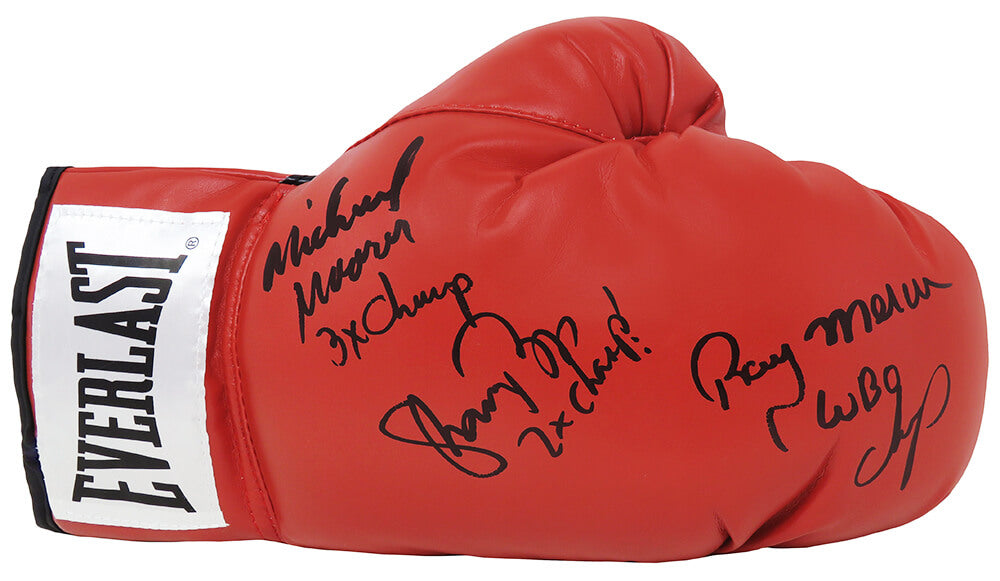 EVERLAST®
Michael
Moorer
3x Champ
Shannon
2x Champ!
Ray Mercer
WBO
Champ